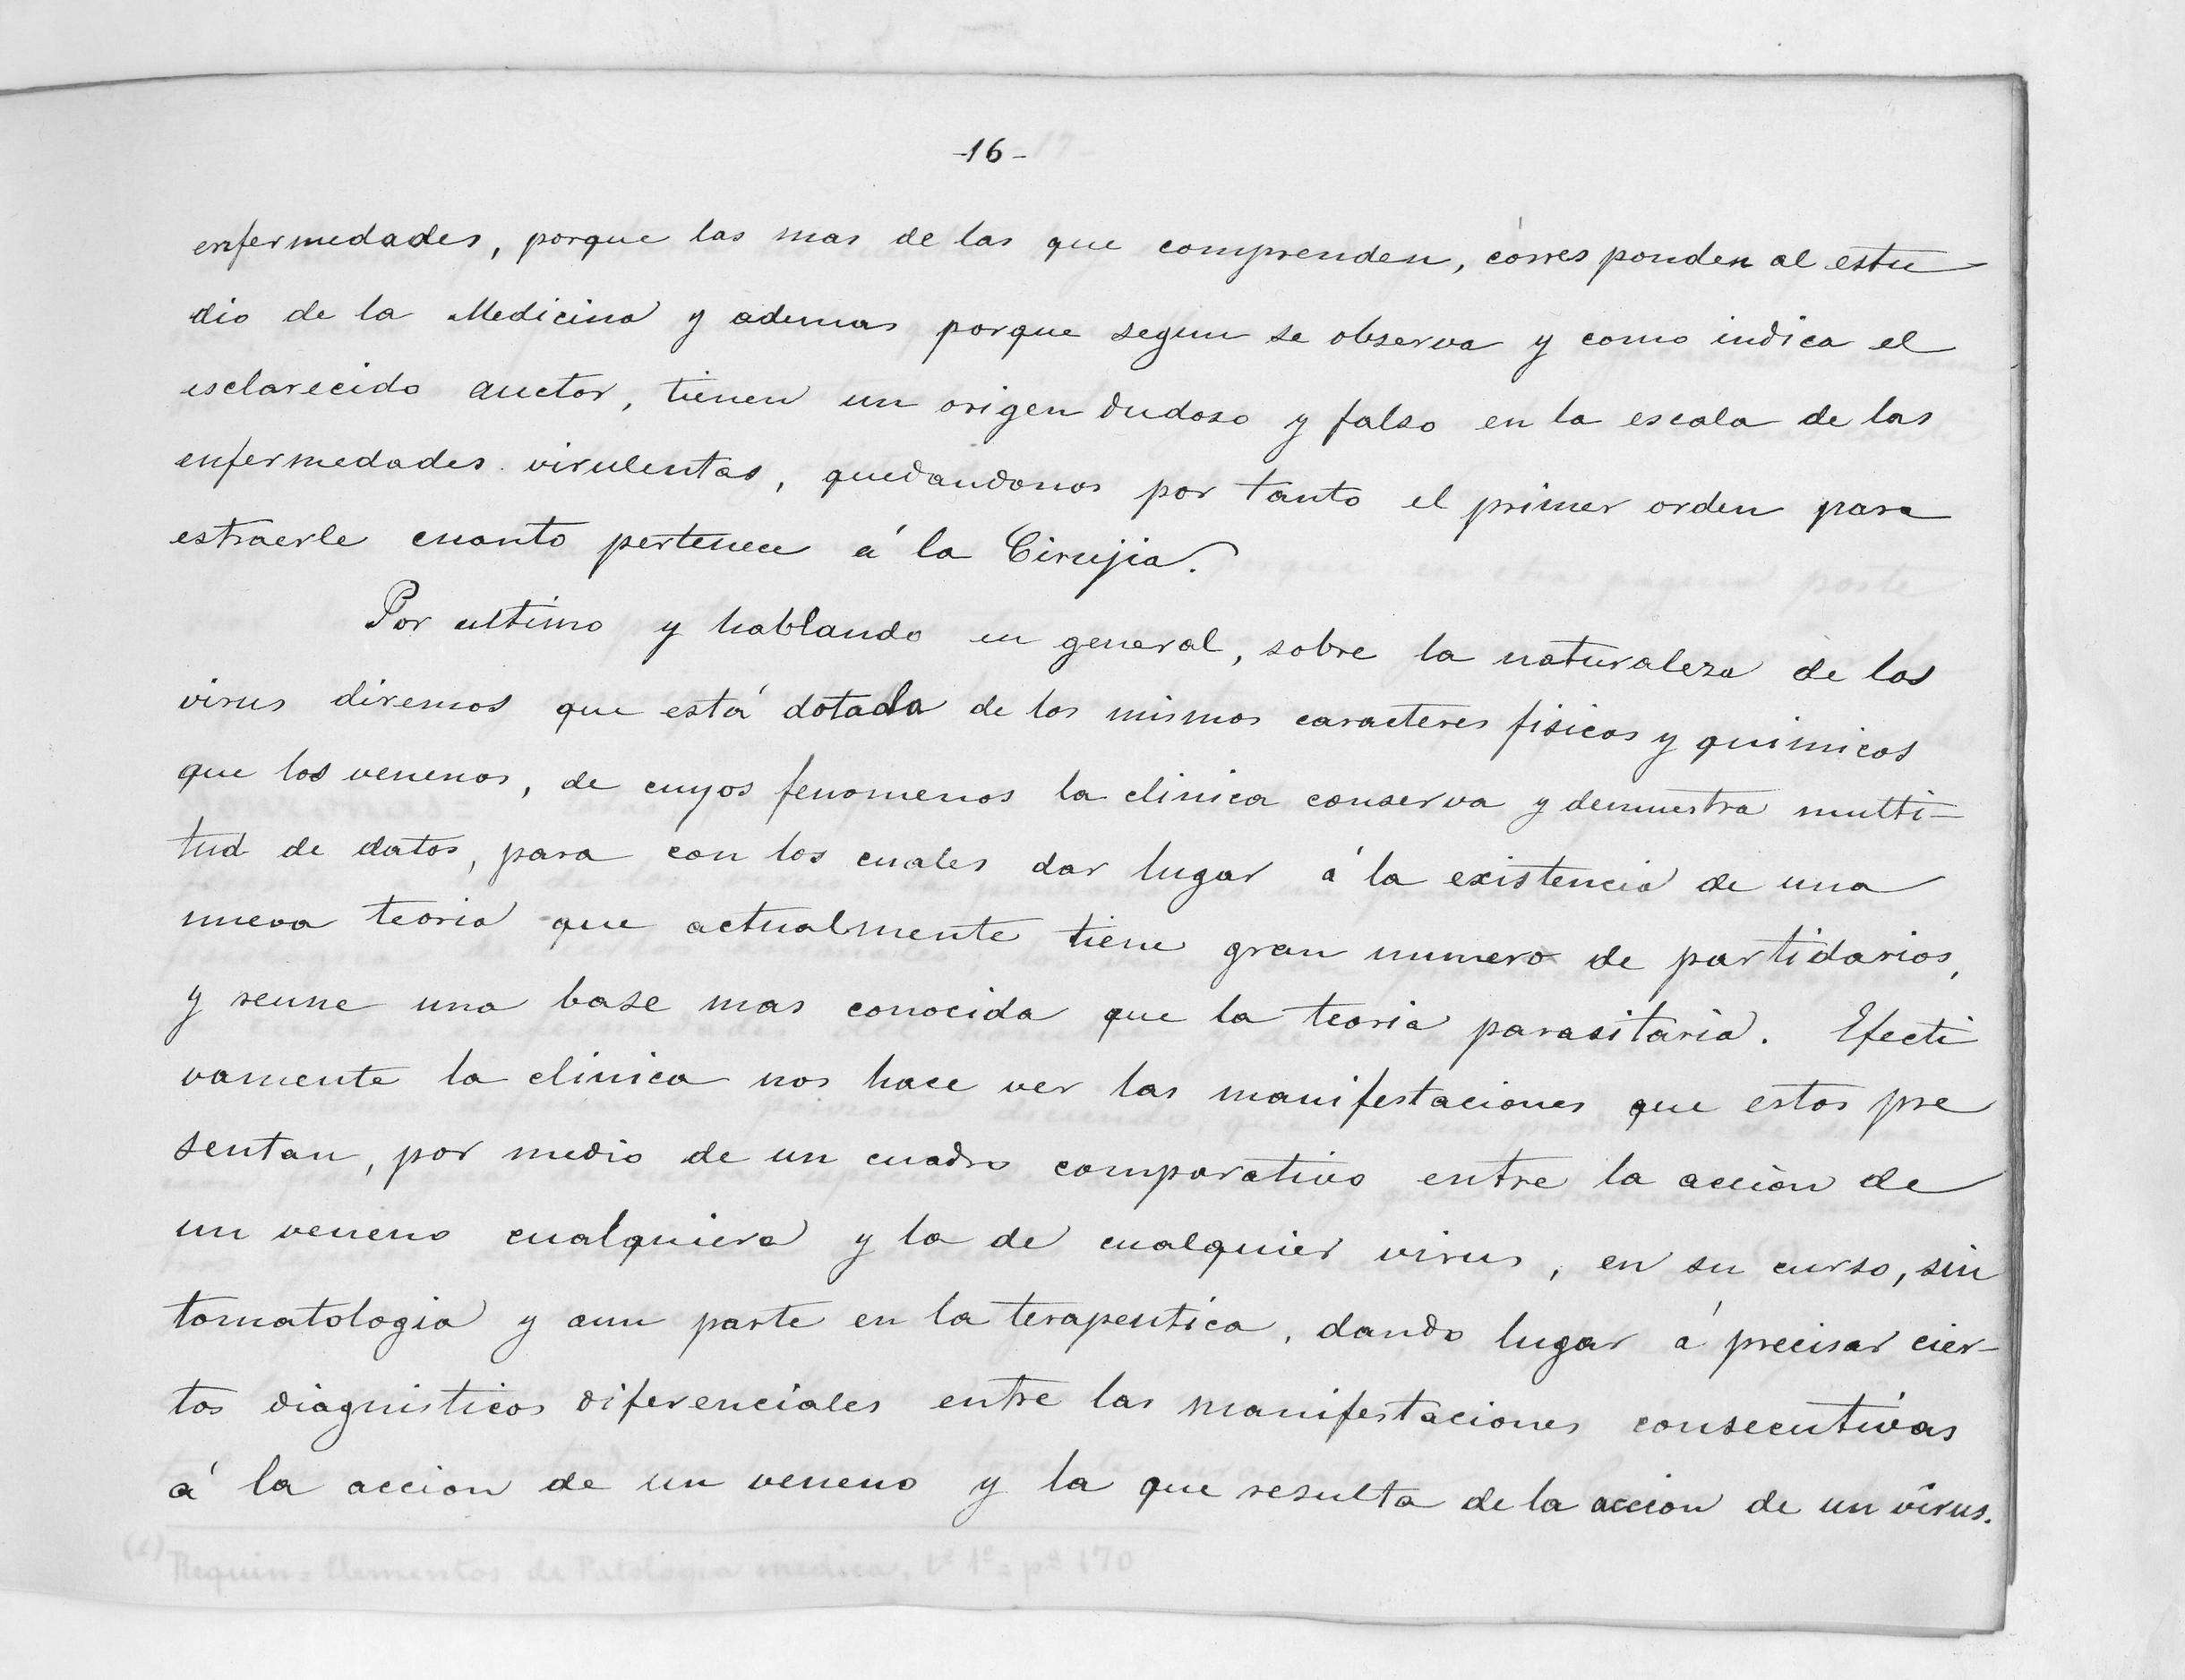 -16-
enfermedades, porque las mas de las que comprenden, corresponden al estu
dio de la Medicina y ademas porque segun se observa y como indica el
esclarecido auctor, tienen un origen dudoso y falso en la escala de las
enfermedades virulentas, quedandonos por tanto el primer orden para
estraerle cuanto pertenece á la Cirujia.
Por ultimo y hablando en general, sobre la naturaleza de los
virus diremos que está dotada de los mismos caracteres fisicos y quimicos
que los venenos, de cuyos fenomenos la clinica conserva y demuestra multi-
tud de datos, para con los cuales dar lugar á la existencia de una
nueva teoria que actualmente tiene gran numero de partidarios,
y reune una base mas conocida que la teoria parasitaria. Efecti
vamente la clinica nos hace ver las manifestaciones que estos pre
sentan, por medio de un cuadro comparativo entre la acción de
un veneno cualquiera y la de cualquier virus, en su curso, sin
tomatologia y aun parte en la terapeutica, dando lugar á precisar cier-
tos diagnisticos diferenciales entre las manifestaciones consecutivas
á la accion de un veneno y la que resulta de la accion de un virus.
(1) Requin = Elementos de Patologia medica, tº 1º = pª 170